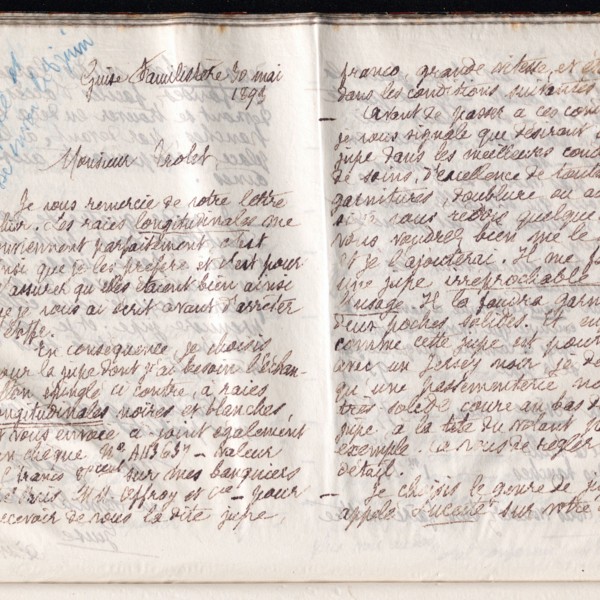 Guise Familistère 30 mai
1893
Monsieur Violet
Je vous remercie de votre lettre
Les raies longitudinales me
conviennent parfaitement c'est
ainsi que je les préfère et c'est pour
m'assurer qu'elles étaient bien ainsi
que je vous ai écrit avant d'arrêter
l'étoffe.
En conséquence je choisis
pour la jupe dont j'ai besoin l'échan-
tillon épinglé ci contre, à raies
longitudinales noires et blanches,
et vous envoie ci-joint également
un chèque No valeur
francs sur mes banquiers
MM. Offroy et Cie pour
recevoir de vous la dite jupe,
franco, grande vitesse, et
dans les conditions suivantes
Avant de passer à ces con
je vous signale que désirant
jupe dans les meilleures cond
de soins, d'excellence de toute
garnitures, doublure ou au
si je vous redois quelque
vous voudrez bien me le
et je l'ajouterai. Il me f
une jupe irréprochable
l'usage. Il la faudra garn
deux poches solides. Et en
comme cette jupe est pour
avec un Jersey noir je dé
qu'une passementerie no
très solide coure au bas de
jupe, à la tête du volant p
exemple. à vous de régler
détail.
— Je choisis le genre de j
appelé sur votre